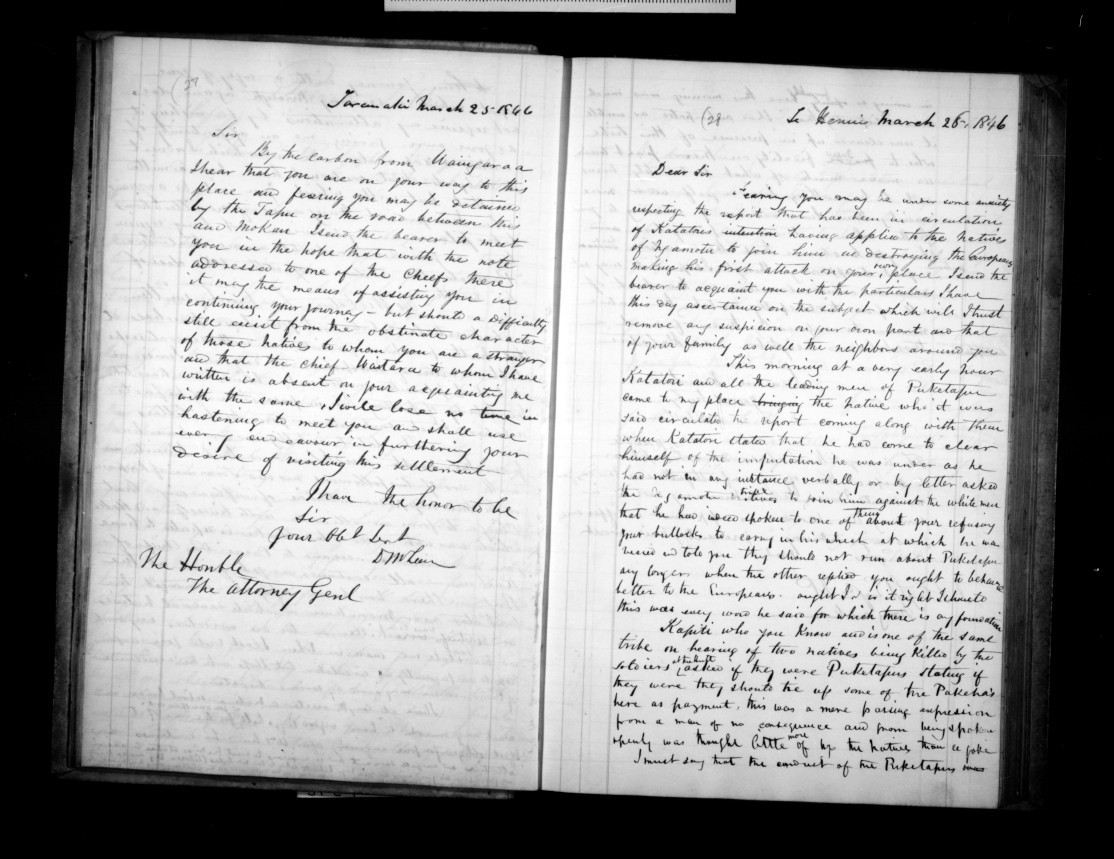 27
Taranaki March 25-1846
Sir
By the carbon from Waingaroa
I hear that you are on your way to this
place and fearing you may be detained
by the Tapu on the road between this
and Mokau I send the bearer to meet
you in the hope that with the note
addressed to one of the Cheefs there
it may the means of assisting you in
continuing your journey - but should a difficulty
still exist from the obstinate character
of those natives to whom you are a stranger
and that the chief Waitara to whom I have
written is absent on your acquainting me
with the same, I will lose no time in
hastening to meet you and shall use
every endeavour in furthering your
desire of visiting this settlement
I have the honor to be
Sir
Your Obt Sert
D McLean
The Honble
The Attorney Genl
(28
To March 26, 1846
Dear Sir
Fearing you may be under some anxiety
respecting the report that has been in circulation
of Katatores intention having applied to the natives
of Ngamotu to join him in destroying the Europeans
making his first attack on your place I send the
bearer to acquaint you with the particulars I have
this day ascertained on the subject which will I trust
remove any suspicion on your own part and that
of your family as well the neighbors around you
This morning at a very early hour
Katatori and all the leading men of Puketapu
came to my place bringing the native who it was
said circulated the report coming along with them
when Katatori stated that he had come to clear
himself of the imputation he was under as he
had not in any instance verbally or by letter asked
the Ngamotu natives to join him against the white men
that he had indeed spoken to one of them about your refusing
your bullocks to carry in his wheat at which he was
and told you they should not run about Puketapu
any longer when the other replied you ought to behave
better to the Europeans. ought I or is it right I should
this was every word he said for which there is any foundation
Kapiti who you know and is one of the same
tribe on hearing of two natives being killed by the
soldiers asked if they were Puketapus stating if
they were they should tie up some of the Pakeha's
here as payment, this was a mere passing expression
from a man of no consequence and from being spoken
openly was thought little more of by the natives than a joke
I must say that the conduct of the Puketapus was